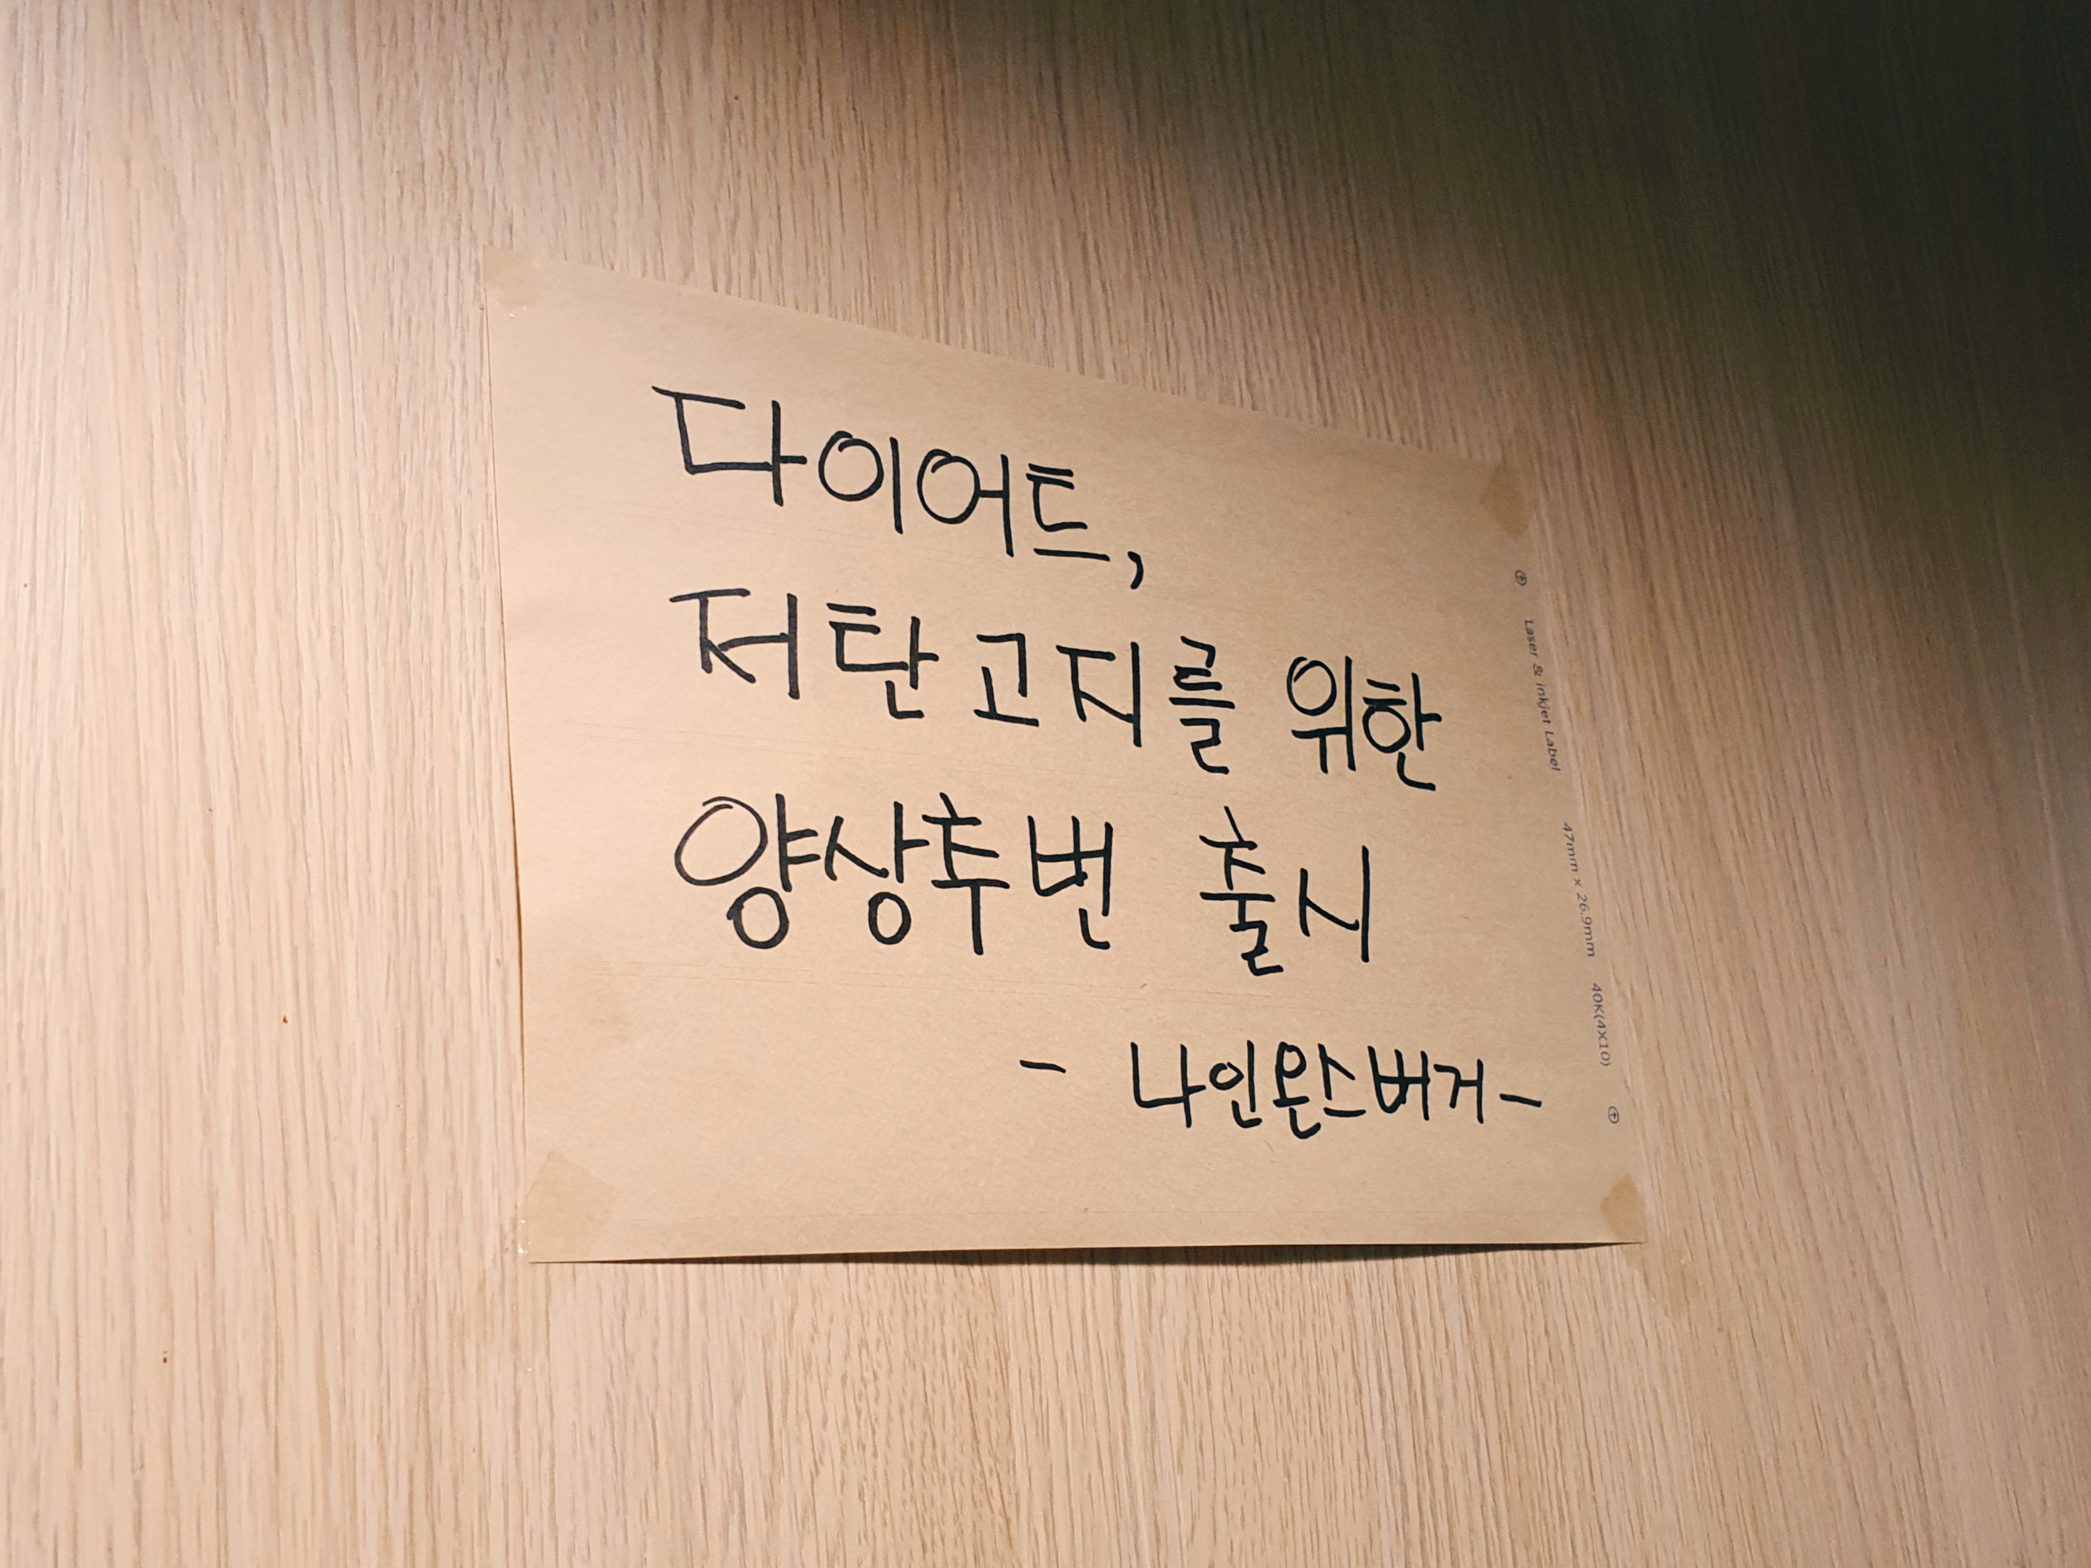 다이어트,
저탄고지를 위한
양상추번 출시
- 나인온스버거-
Laser & inkjet Label 47mm x 26.9mm 40K(4X10)